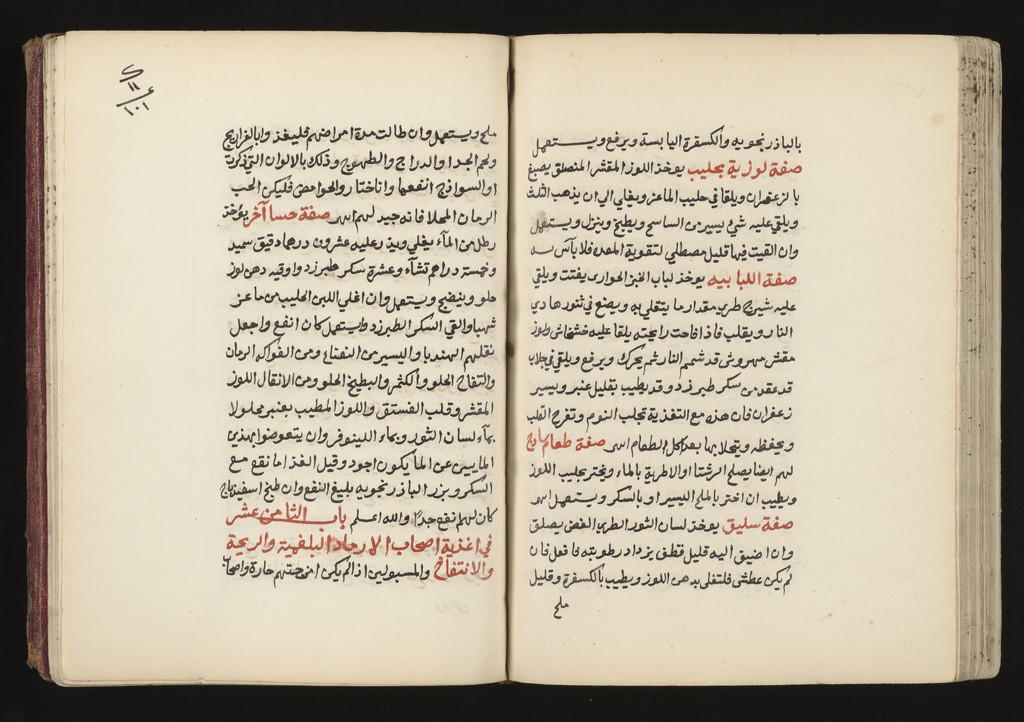 بالباذرنجويه والكسفرة اليابسة ويرفع ويستعمل
صفة لوزية بحليب يوخذ اللوز المقشر المنصلق يصبغ
بالزعفران ويلقا في حليب الماعز ويغلي الي ان يذهب الثلث
ويلقي عليه شيئ يسير من ويطبخ وينزل ويستعمل
وان القيت فيها قليل مصطلي لتقوية المعده فلا بأس به
صفة اللبابيه يوخذ لباب الخبز الحواري يفتت ويلقي
عليه شيرج طري مقدار ما يتقلي به ويصنع في تنور هادي
النار ويقلب فاذا فاحت رايحته يلقا عليه خشخاش ولوز
مقشر مهروش قد شمم النار ثم يحرك ويرفع ويلقي في جلاب
قد عقد من سكر طبرزد وقد يطيب بقليل عنبر ويسير
زعفران فان هذه مع التغذية تجلب النوم وتفرح القلب
ويحفظه ويتحلا بها بعد اكل الطعام اهـ صفة طعام
لهم ايضا يصلح الرشتا او الاطرية بالماء ويختر بحليب اللوز
ويطيب ان اختر بالملح اليسير او بالسكر ويستعمل اهـ
صفة سليق يوخذ لسان الثور الطري الغض يصلق
وان اضيف اليه قليل قطف يزداد رطوبته فافعل فان
لم يكن عطشى فلتغلى بدهن اللوز ويطيب بالكسفرة وقليل
ملح
ملح ويستعمل وان طالت مدة امراضهم فليغذ وابالفراريج
ولحم الجدا والدراج والطهيوج وذلك بالالوان التي ذكرت
او السواذج انفعها وان اختار والحوامض فليكن الحب
الرمان المحلا فانه جيد لهم اهـ صفة حسا آخر يؤخذ
رطل من المآء يغلي ويذر عليه عشرون درهما دقيق سميد
وخمسة دراهم نشآء وعشرة سكر طبرزد واوقيه دهن لوز
حلو وينضج ويستعمل وان اغلي اللبن الحليب من ماعز
شهبا والقي السكر الطبرزد واستعمل كان انفع واجعل
نقلهم الهندبا واليسير من النعناع ومن الفواكه الرمان
والتفاح الحلو والكثمر والبطيخ الحلو ومن الانقال اللوز
المقشر وقلب الفستق واللوز المطيب بعنبر محلولا
بمآء لسان الثور وبماء اللينوفر وان يتعوضوا بهذين
المايين عن الما يكون اجود وقيل الغذا ما نقع مع
السكر وبزر الباذرنجويه بليغ النفع وان طبخ اسفيذباج
كان لهم نفع جدا والله اعلم باب الثامن عشر
في اغذية اصحاب الارجاد البلغمية والريحة
والانتفاخ والمسبولين اذا لم يكن امزجتهم حارة واصحاب